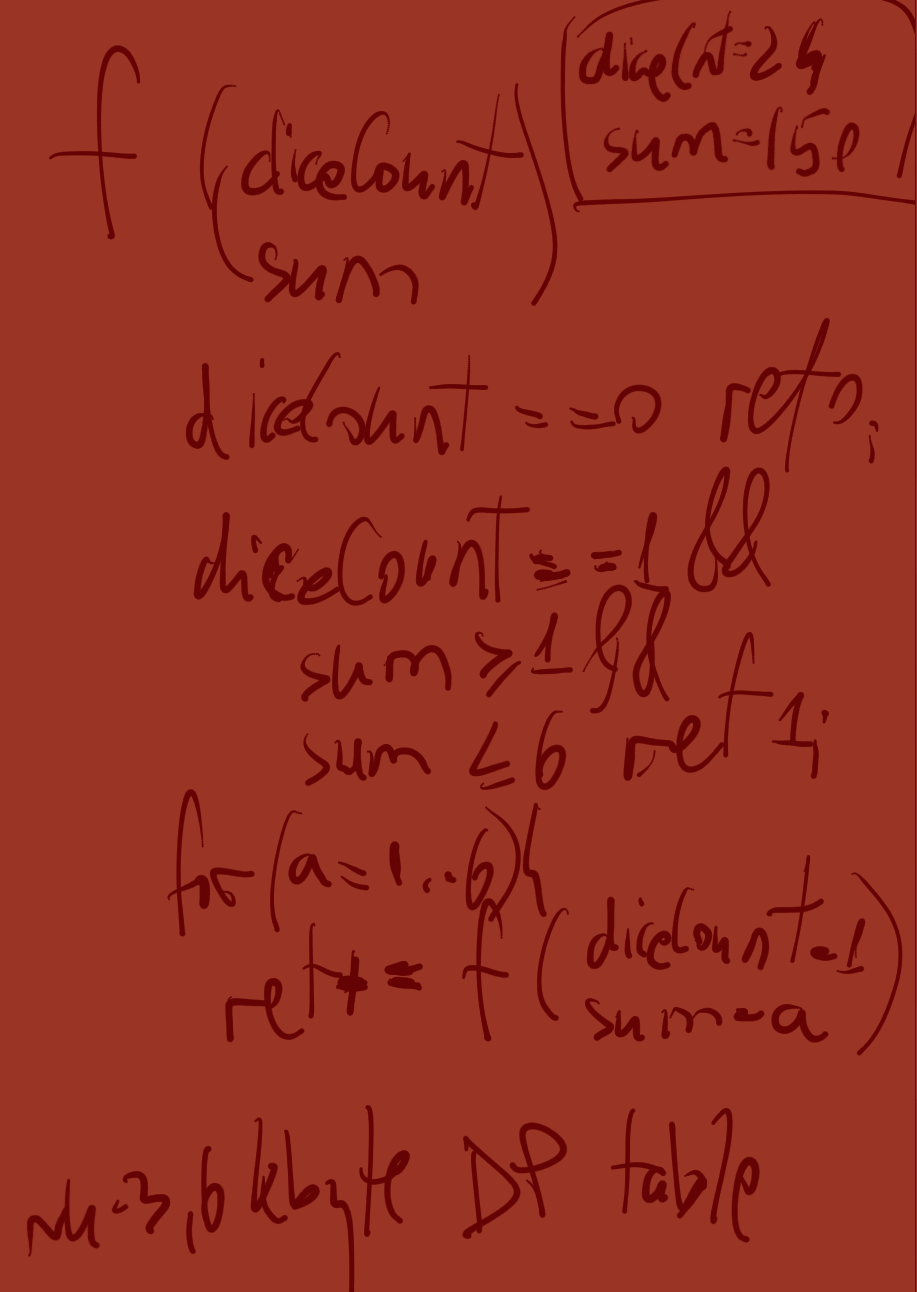 f (diceCount
sum)
diceCnt=24
sum=150
dicecount ==0 ret 0;
diceCount ==1 &&
sum ≥1 &&
sum ≤6 ret 1;
for (a=1..6){
ret += f (diceCount-1
sum-a)
3,6 kbyte DP table